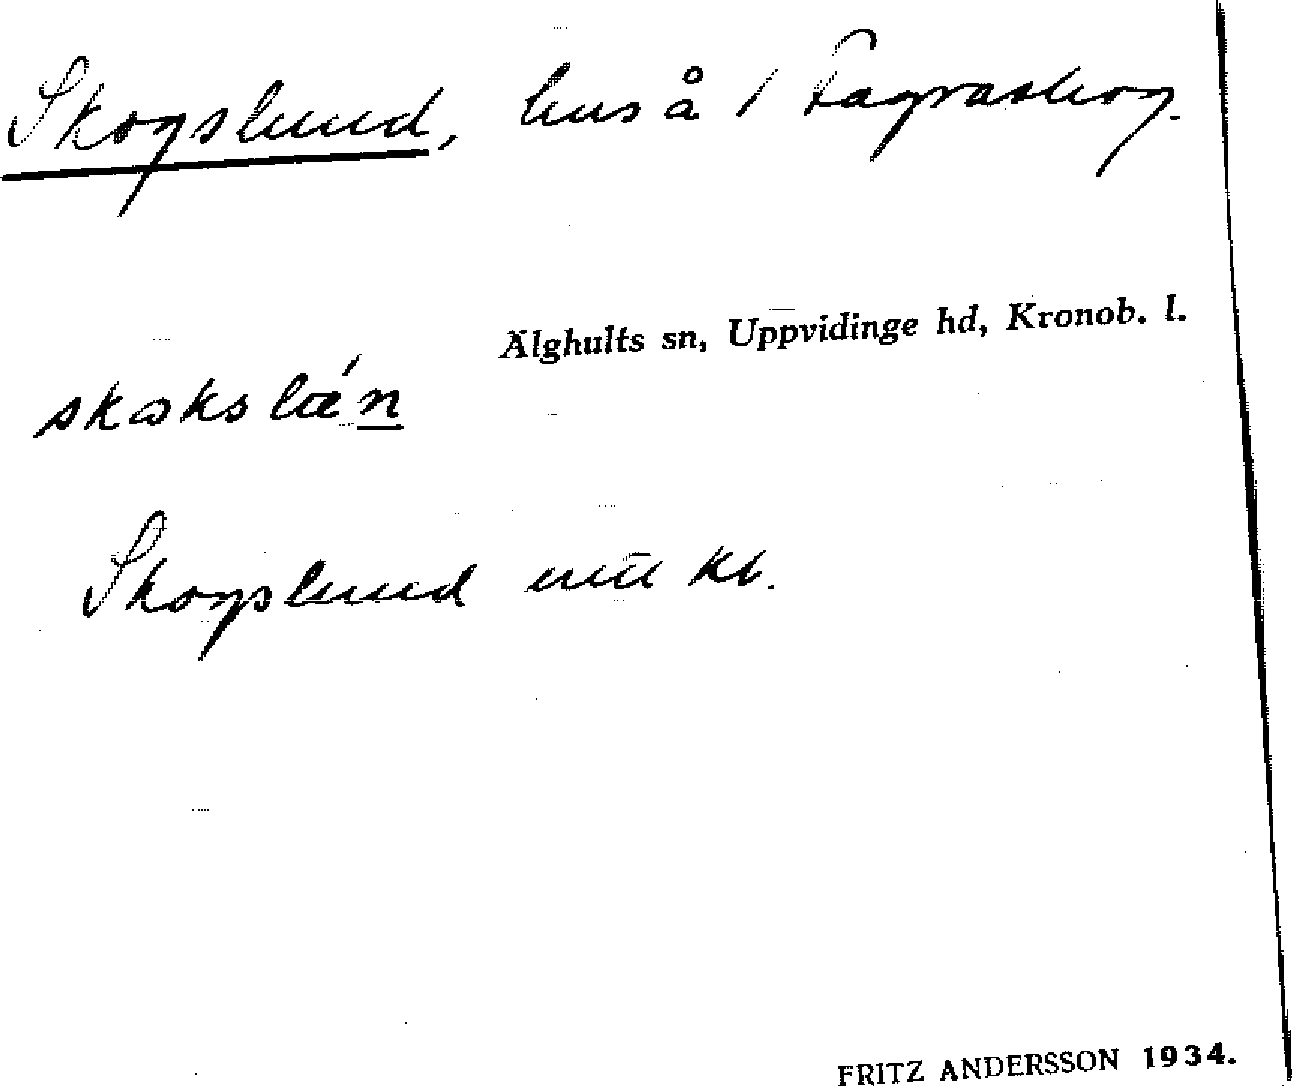 Skogslund, hus å / Fagraskog.
Älghults sn, Uppvidinge hd, Kronob. l.
skoksláen
Skogslund mtl kb.
FRITZ ANDERSSON 1934.